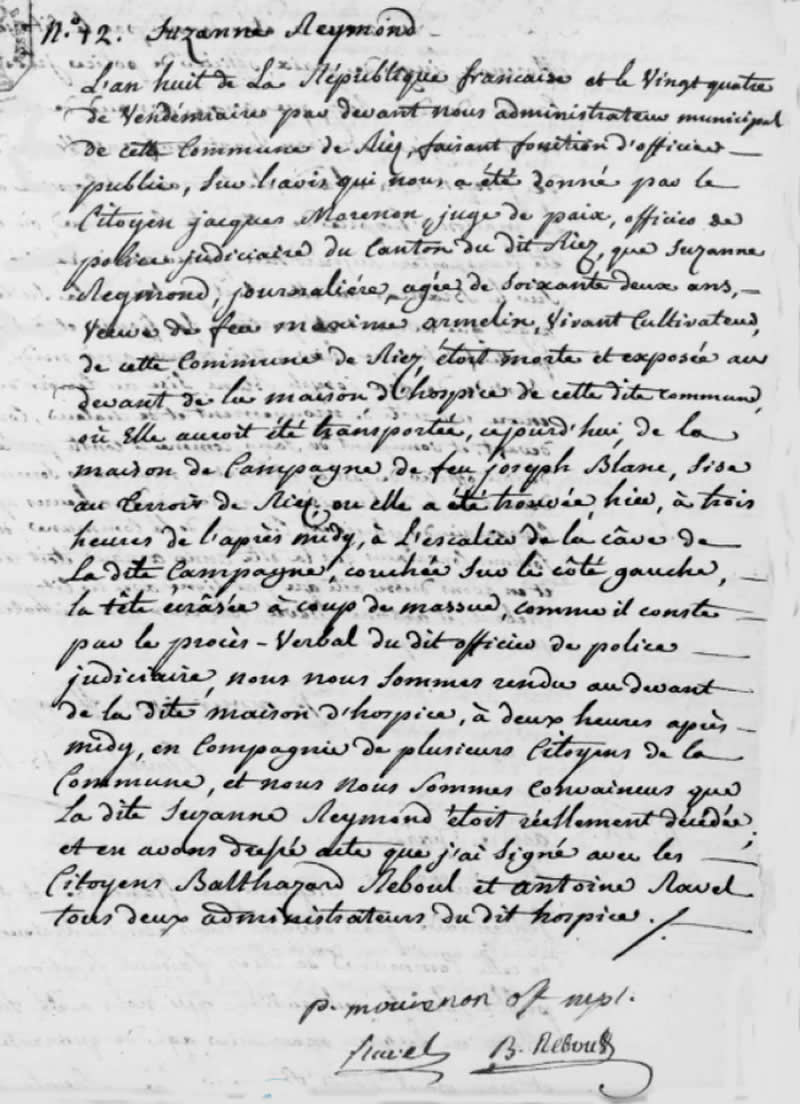 N.° 42. Suzanne Reymond
L'an huit de La République francaise et le Vingt quatre
de Vendémiaire par devant nous administrateur municipal
de cette Commune de Riez, faisant fonction d'officier
public, Sur l'avis qui nous a été donné par le
Citoyen jacques Morenon, juge de paix, officier de
police judiciaire du Canton du dit Riez, que Suzanne
Reymond, journaliére, agée de Soixante deux ans,
Veuve de feu maxime armelin, Vivant Cultivateur,
de cette Commune de Riez, étoit morte et exposée au
devant de la maison d'hospice de cette dite commune,
où Elle auroit été transportée, cejourd'hui, de la
maison de Campagne de feu joseph Blanc, Sise
au Terroir de Riez, ou elle a été trouvée hier, à trois
heures de l'après midy, à L'escalier de la câve de
La dite Campagne, couchée Sur le côté gauche,
la tête écrâsée à coup de massue, comme il conste
par le procès-Verbal du dit officier de police
judiciaire, nous nous Sommes rendu au devant
de la dite maison d'hospice, à deux heures après
midy, en Compagnie de plusieurs Citoyens de la
Commune, et nous nous Sommes Convaincus que
La dite Suzanne Reymond étoit réellement décédée;
et en avons dressé acte que j'ai Signé avec les
Citoyens Balthazard Reboul et antoine Ravel
tous deux administrateurs du dit hospice.
p. mouvenon off mpl.
Ravel B. Reboul